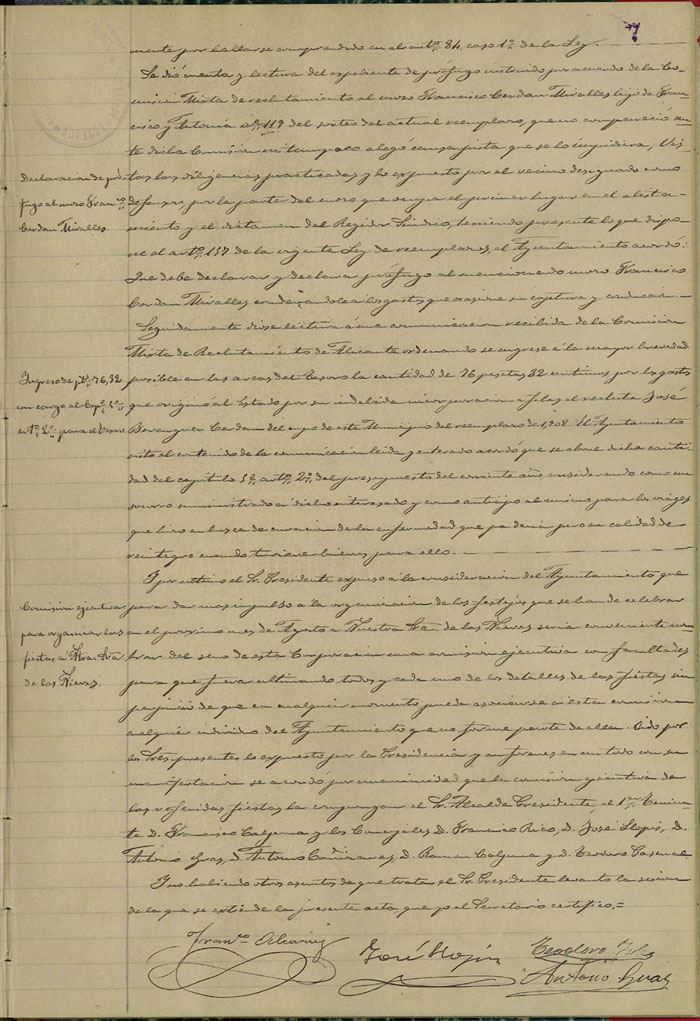 7
mente por hallarse comprendido en el artº 84, caso 1º de la Ley.
Se dió cuenta y lectura del expediente de prófugo instruido por acuerdo de la Co-
misión Mixta de reclutamiento al mozo Francisco Cerdan Miralles hijo de Fran-
cisco y Antonia nº 119 del sorteo del actual reemplazo, que no compareció an-
te dicha Comisión ni tampoco alegó causa justa que se lo impidiera; Vis-
Declaracion de pró-
fugo al mozo Franco
Cerdan Miralles.
tas las diligencias practicadas y lo expuesto por el vecino designado como
defensor, por la parte del mozo que ocupa el primer lugar en el alista-
miento y el dictamen del Regidor Síndico, teniendo presente lo que dispo-
ne el artº 157 de la vigente Ley de reemplazos, el Ayuntamiento acordó:
Que debe declarar y declara prófugo al mencionado mozo Francisco
Cerdan Miralles condenandole a los gastos que ocasione su captura y conduccion.
Seguidamente diose lectura á una comunicacion recibida de la Comision
Mixta de Reclutamiento de Alicante ordenando se ingrese á la mayor brevedad
Ingreso de pts 76,32
con cargo al Capº 5º
artº 2º para el Tesoro
posible en las arcas del tesoro la cantidad de 76 pesetas 32 centimos por los gastos
que originó al Estado por su indebida incorporacion a filas el recluta José
Berenguer Cerdan del cupo de este Municipio del reemplazo de 1908. El Ayuntamiento
visto el contenido de la comunicacion leida y enterado acordó que se abone dicha canti-
dad del capitulo 5º artº 2º del presupuesto del corriente año considerando como un
socorro suministrado a dicho interesado y como anticipo al mismo para los viajes
que hizo en busca de curacion de la enfermedad que padecia pero en calidad de
reintegro cuando tuviere bienes para ello.
Y por ultimo el Sr. Presidente expuso á la consideracion del Ayuntamiento que
Comision ejecutiva
para organizar las
fiestas á Ntra. Sra.
de las Nieves.
para dar mas impulso á la organizacion de los festejos que se han de celebrar
en el proximo mes de Agosto a Nuestra Sra. de las Nieves seria conveniente nom-
brar del seno de esta Corporacion una comision ejecutiva con facultades
para que fuera ultimando todos y cada uno de los detalles de las fiestas sin
perjuicio de que en cualquier momento pueda asociarse a esta comision
cualquier individuo del Ayuntamiento que no forme parte de ella. Oido por
los Sres. presentes lo expuesto por la Presidencia y conformes en un todo con su
manifestacion se acordó por unanimidad que la comision ejecutiva de
las referidas fiestas la compongan el Sr. Alcalde Presidente, el 1er Tenien-
te D. Francisco Calpena y los Concejales D. Francisco Rico, D. José Llopis, D.
Antonio Gras, D. Antonio Cañizares, D. Ramon Calpena y D. Teodoro Pascual
Y no habiendo otros asuntos de que tratar el Sr. Presidente levantó la sesion
de la que se extiende la presente acta que yo el Secretario certifico.=
Franco Alcaraz
José Llopis
Teodoro
Antonio Gras